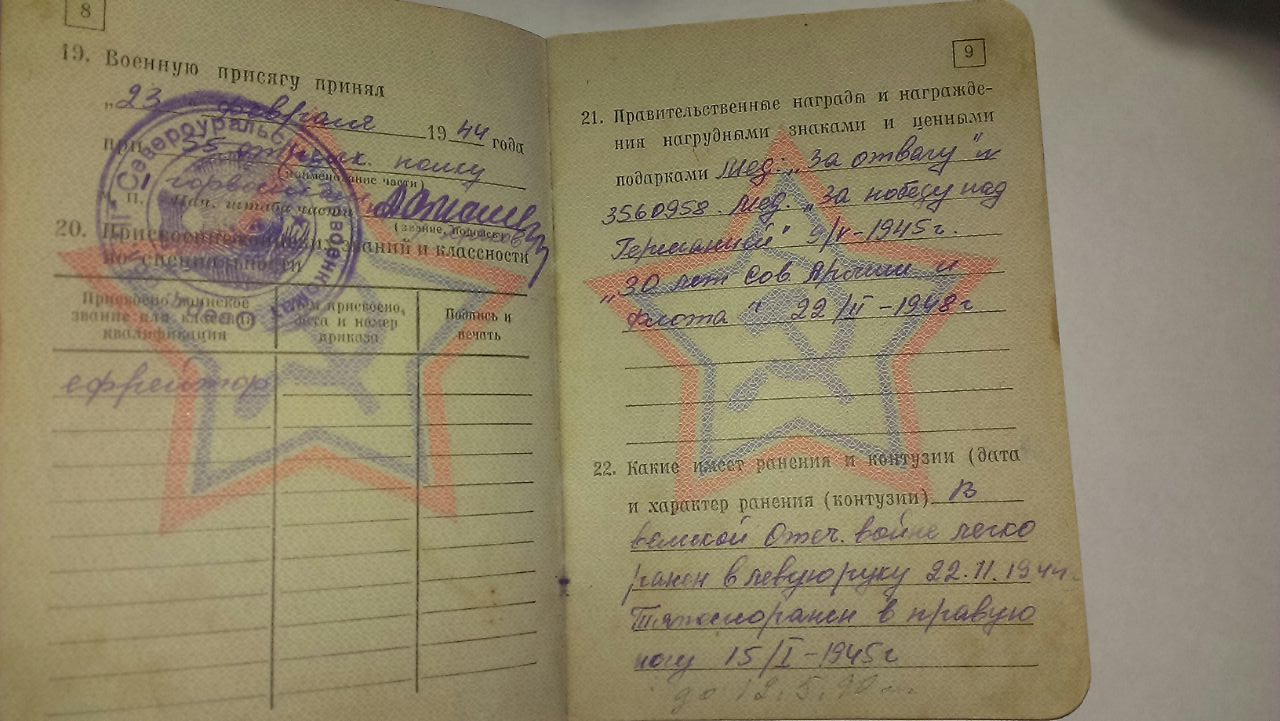 8
19. Военную присягу принял
„23 “ февраля 1944 года
при 35
полку
(наименование части)
М. П. Нач. штаба части
(звание, подпись)
Североуральск
горвоенкомат
20. Присвоение воинских званий и классности
по специальности
Присвоено воинское
звание или классная
квалификация
Кем присвоено,
дата и номер
приказа
Подпись и
печать
ефрейтор
9
21. Правительственные награды и награжде-
ния нагрудными знаками и ценными
подарками Мед: „За отвагу“ №
3560958. Мед. „За победу над
Германией“ 9/V-1945г.
„30 лет Сов Армии и
Флота“ 22/II-1948г
22. Какие имеет ранения и контузии (дата
и характер ранения (контузии) В
великой Отеч. войне легко
ранен в левую руку 22.11.1944г
Тяжело ранен в правую
ногу 15/I-1945г
до 12.5.90 г.